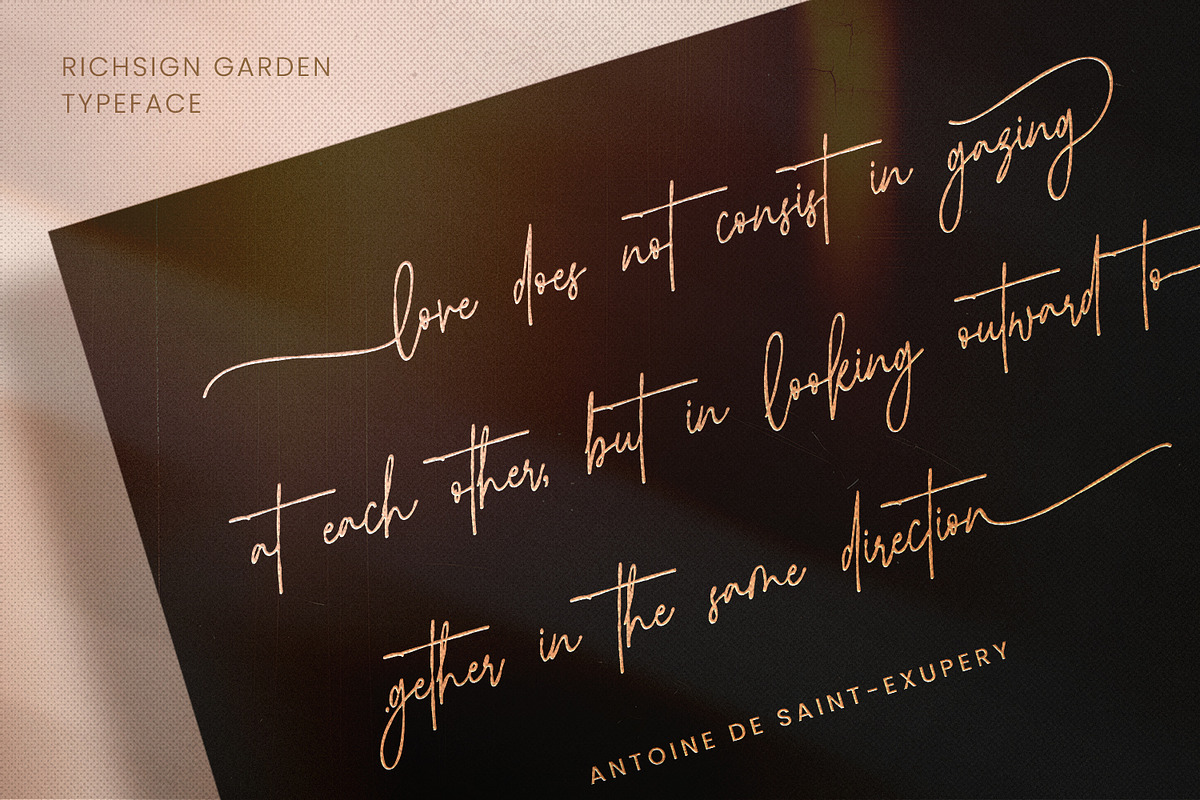 RICHSIGN GARDEN
TYPEFACE
love does not consist in gazing
at each other, but in looking outward to-
gether in the same direction
ANTOINE DE SAINT-EXUPERY